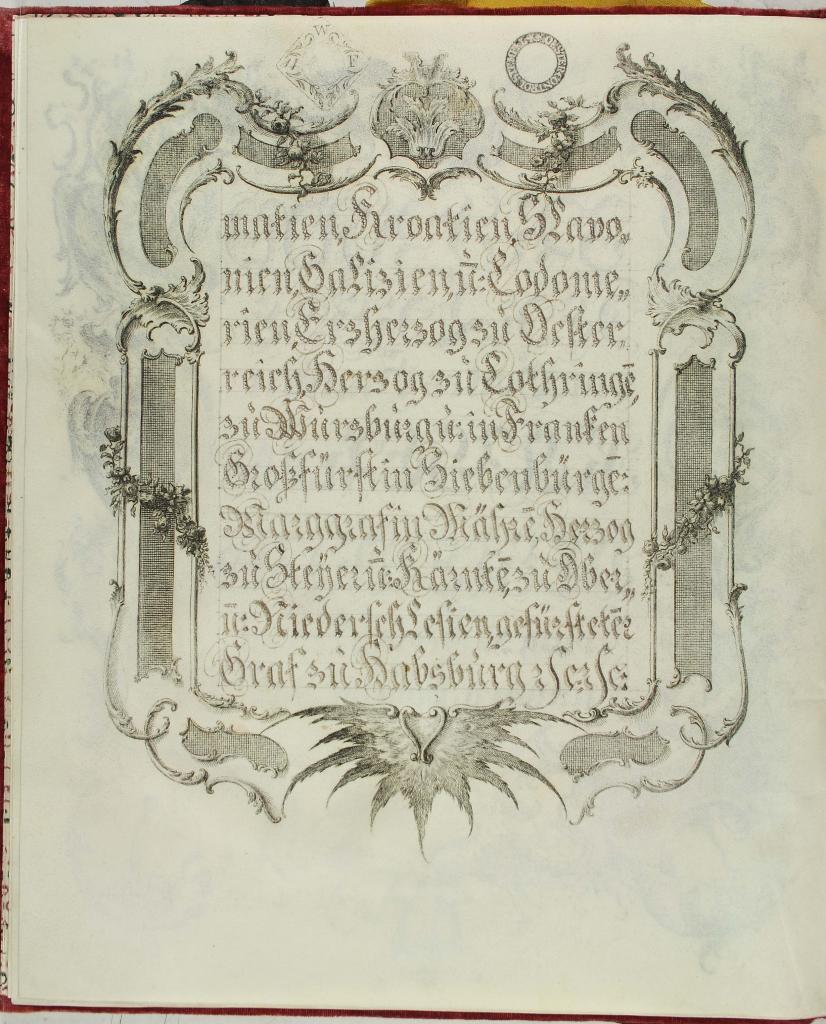 matien, Kroatien, Slavo„
nien, Galizien, ũ: Lodome„
rien, Erzherzog zu Oester„
reich, Herzog zu Lothringẽ,
zu Würzburg u: in Franken
Großfürst in Siebenbürgẽ:
Marggraf in Mährẽ, Herzog
zu Steÿer ũ: Kärntẽ, zu Ober„
ũ: Niederschlesien, gefürstetẽr
Graf zu Habsburg ꝛc: ꝛc: